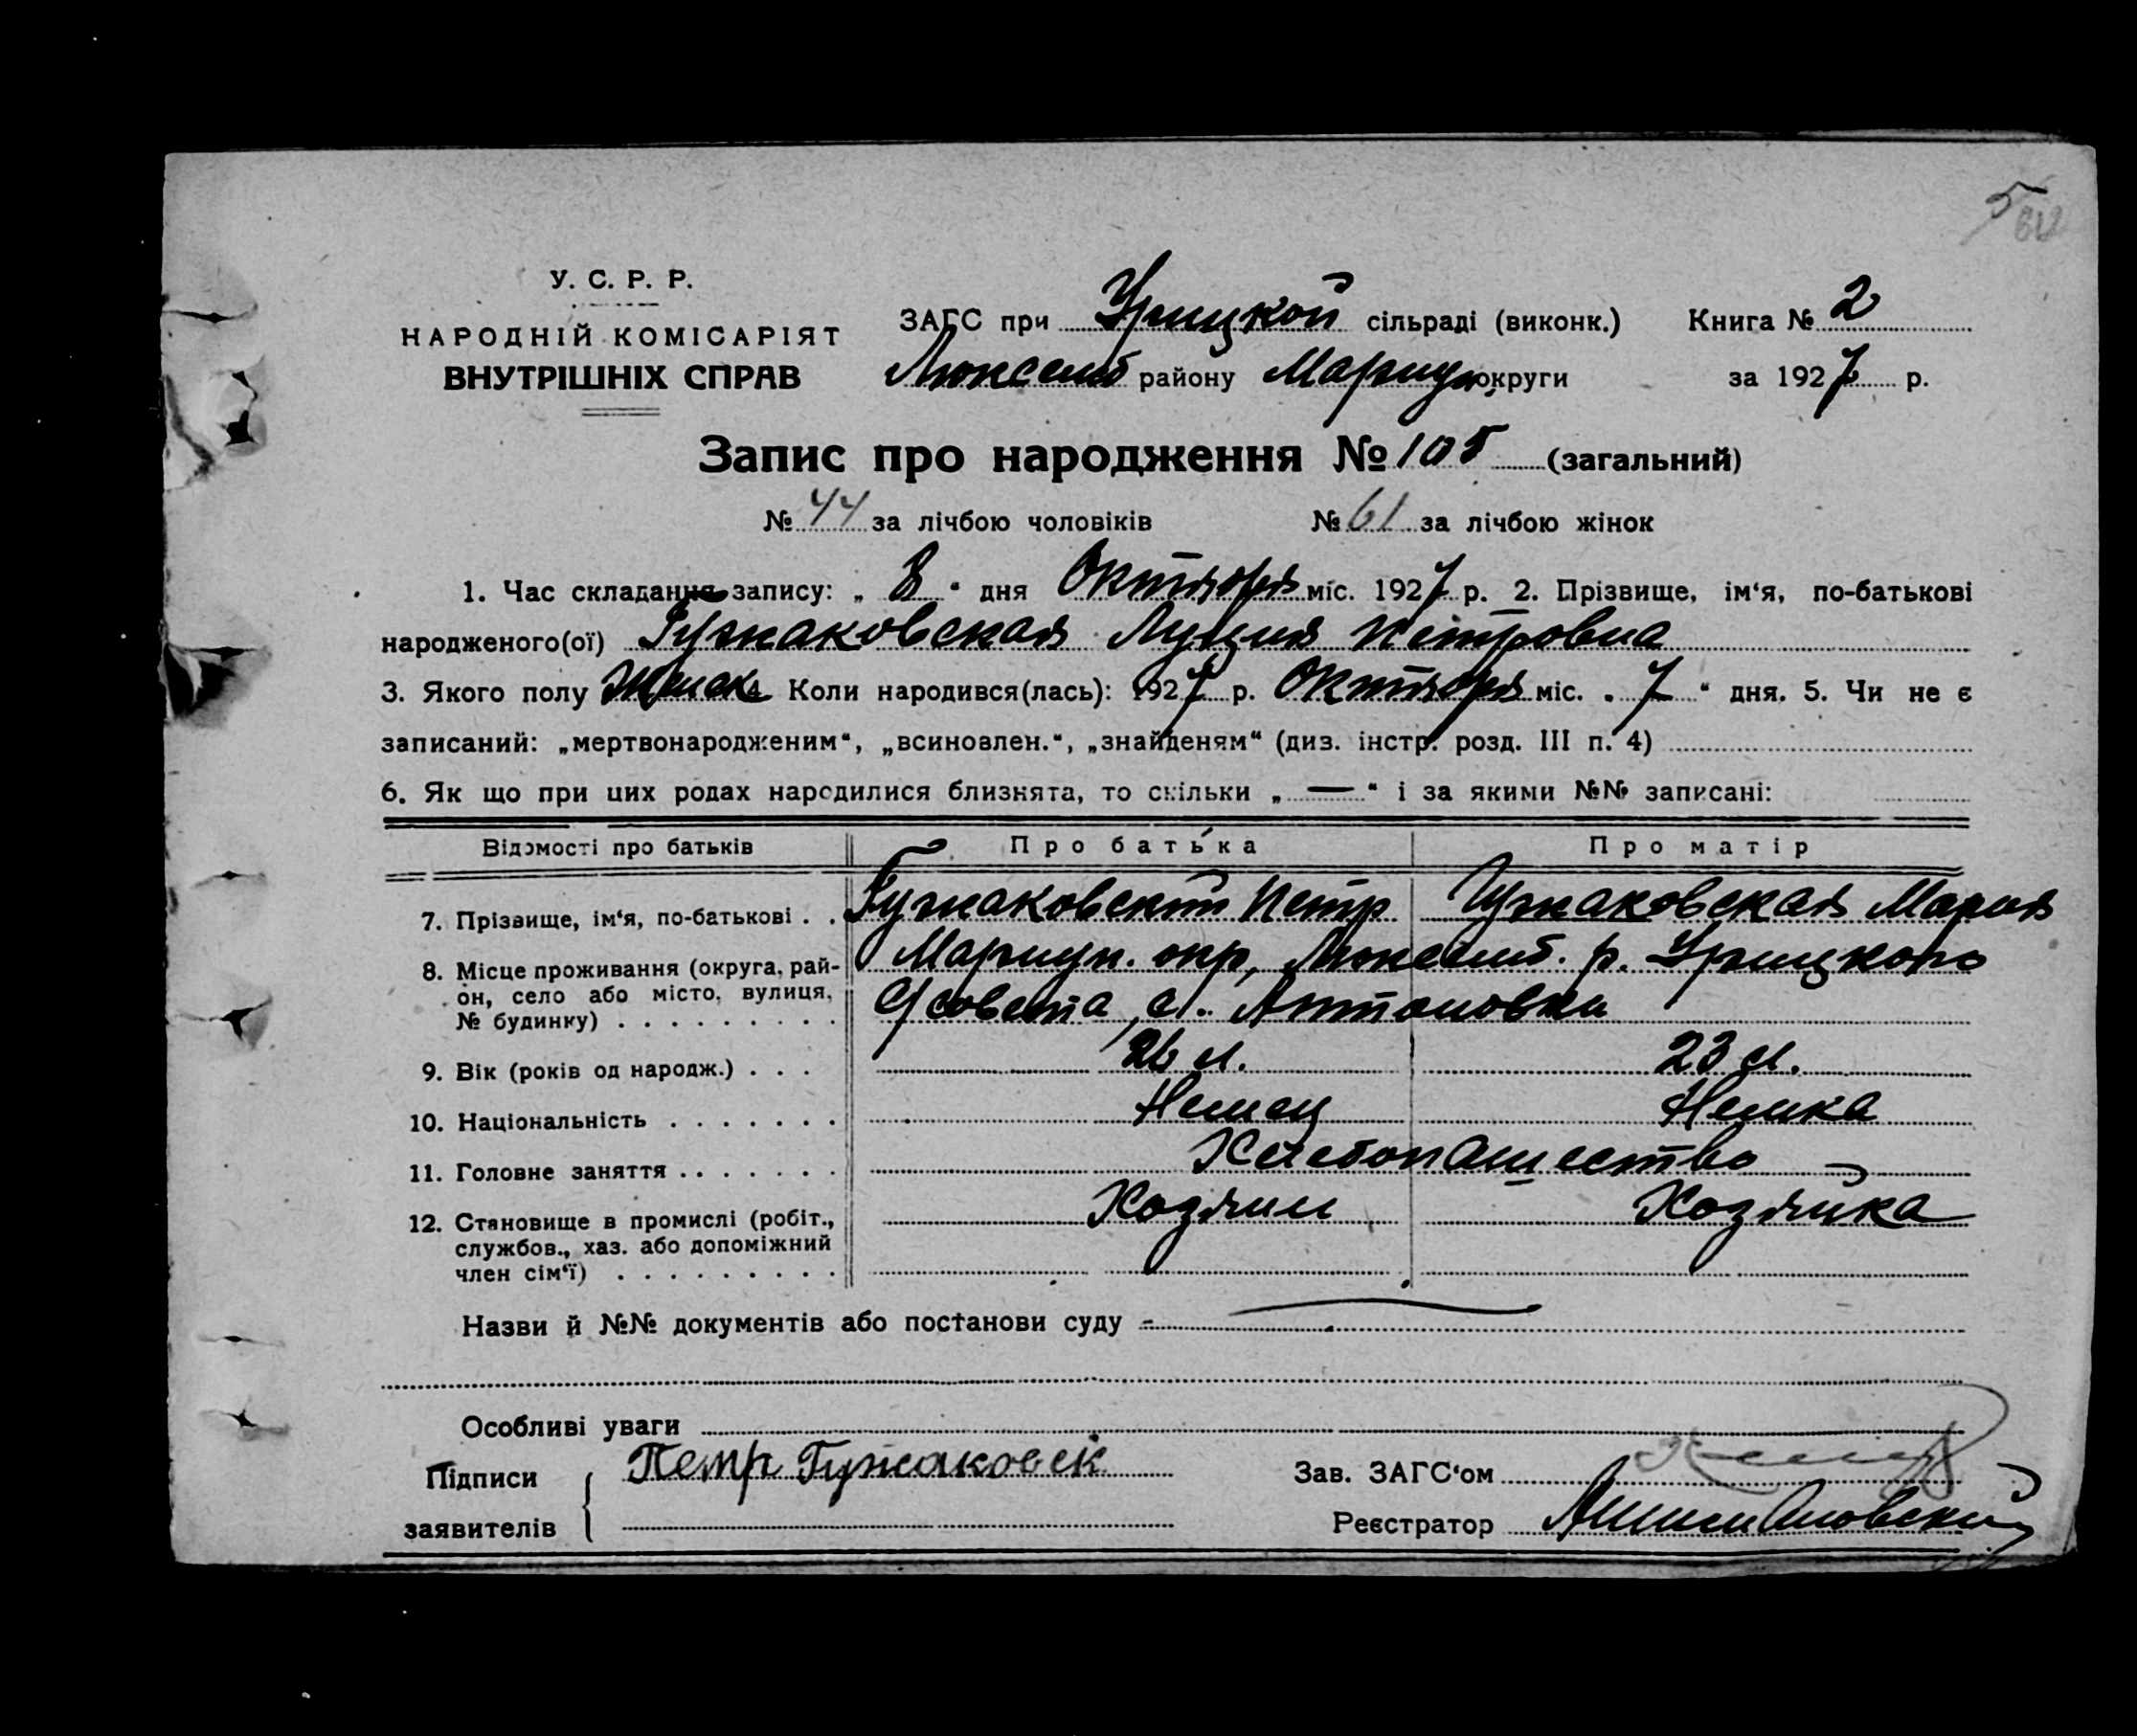 5
У. С. Р. Р.
НАРОДНІЙ КОМІСАРІЯТ
ВНУТРІШНІХ СПРАВ
ЗАГС при Урицкой сільраді (виконк.) Книга № 2
Люксемб району Мариуп. округи за 1927 р.
Запис про народження № 105 (загальний)
№ 44 за лічбою чоловіків № 61 за лічбою жінок
1. Час складання запису: „ 8 “ дня Октября міс. 1927 р. 2. Прізвище, ім‘я, по-батькові
народженого(ої) Гужаковская Луция Петровна
3. Якого полу Женск. 4. Коли народився(лась): 1927 р. Октября міс. „ 7 “ дня. 5. Чи не є
записаний: „мертвонародженим“, „всиновлен.“, „знайденям“ (диз. інстр. розд. III п. 4)
6. Як що при цих родах народилися близнята, то скільки „ — “ і за якими №№ записані:
Відомості про батьків Про батька Про матір
7. Прізвище, ім‘я, по-батькові . . Гужаковский Петр Гужаковская Мария
8. Місце проживання (округа, рай- Мариуп. окр, Люксемб. р. Урицкого
он, село або місто, вулиця, с/совета, с.
№ будинку) . . . . . . . . .
9. Вік (років од народж.) . . . 26 л. 23 л.
10. Національність . . . . . . . Немец Немка
11. Головне заняття . . . . . . . Хлебопашество
12. Становище в промислі (робіт., Хозяин Хозяйка
службов., хаз. або допоміжний
член сім‘ї) . . . . . . . . .
Назви й №№ документів або постанови суду -
Особливі уваги
Підписи Петр Гужаковск Зав. ЗАГС‘ом
заявителів Реєстратор